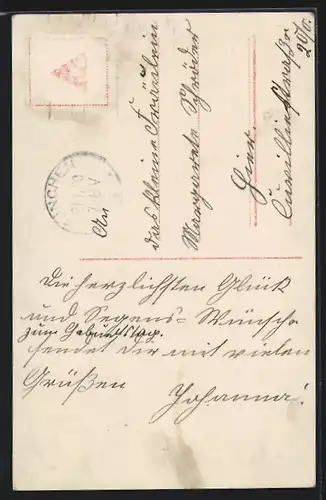 An
das kleine Fräulein
Margarete Schröder
Hier.
Cuvilliesstraße
20/0.
MÜNCHEN
Die herzlichsten Glück
und Segens-Wünsche
zum Geburtstag.
sendet Dir mit vielen
Grüßen Johanna!